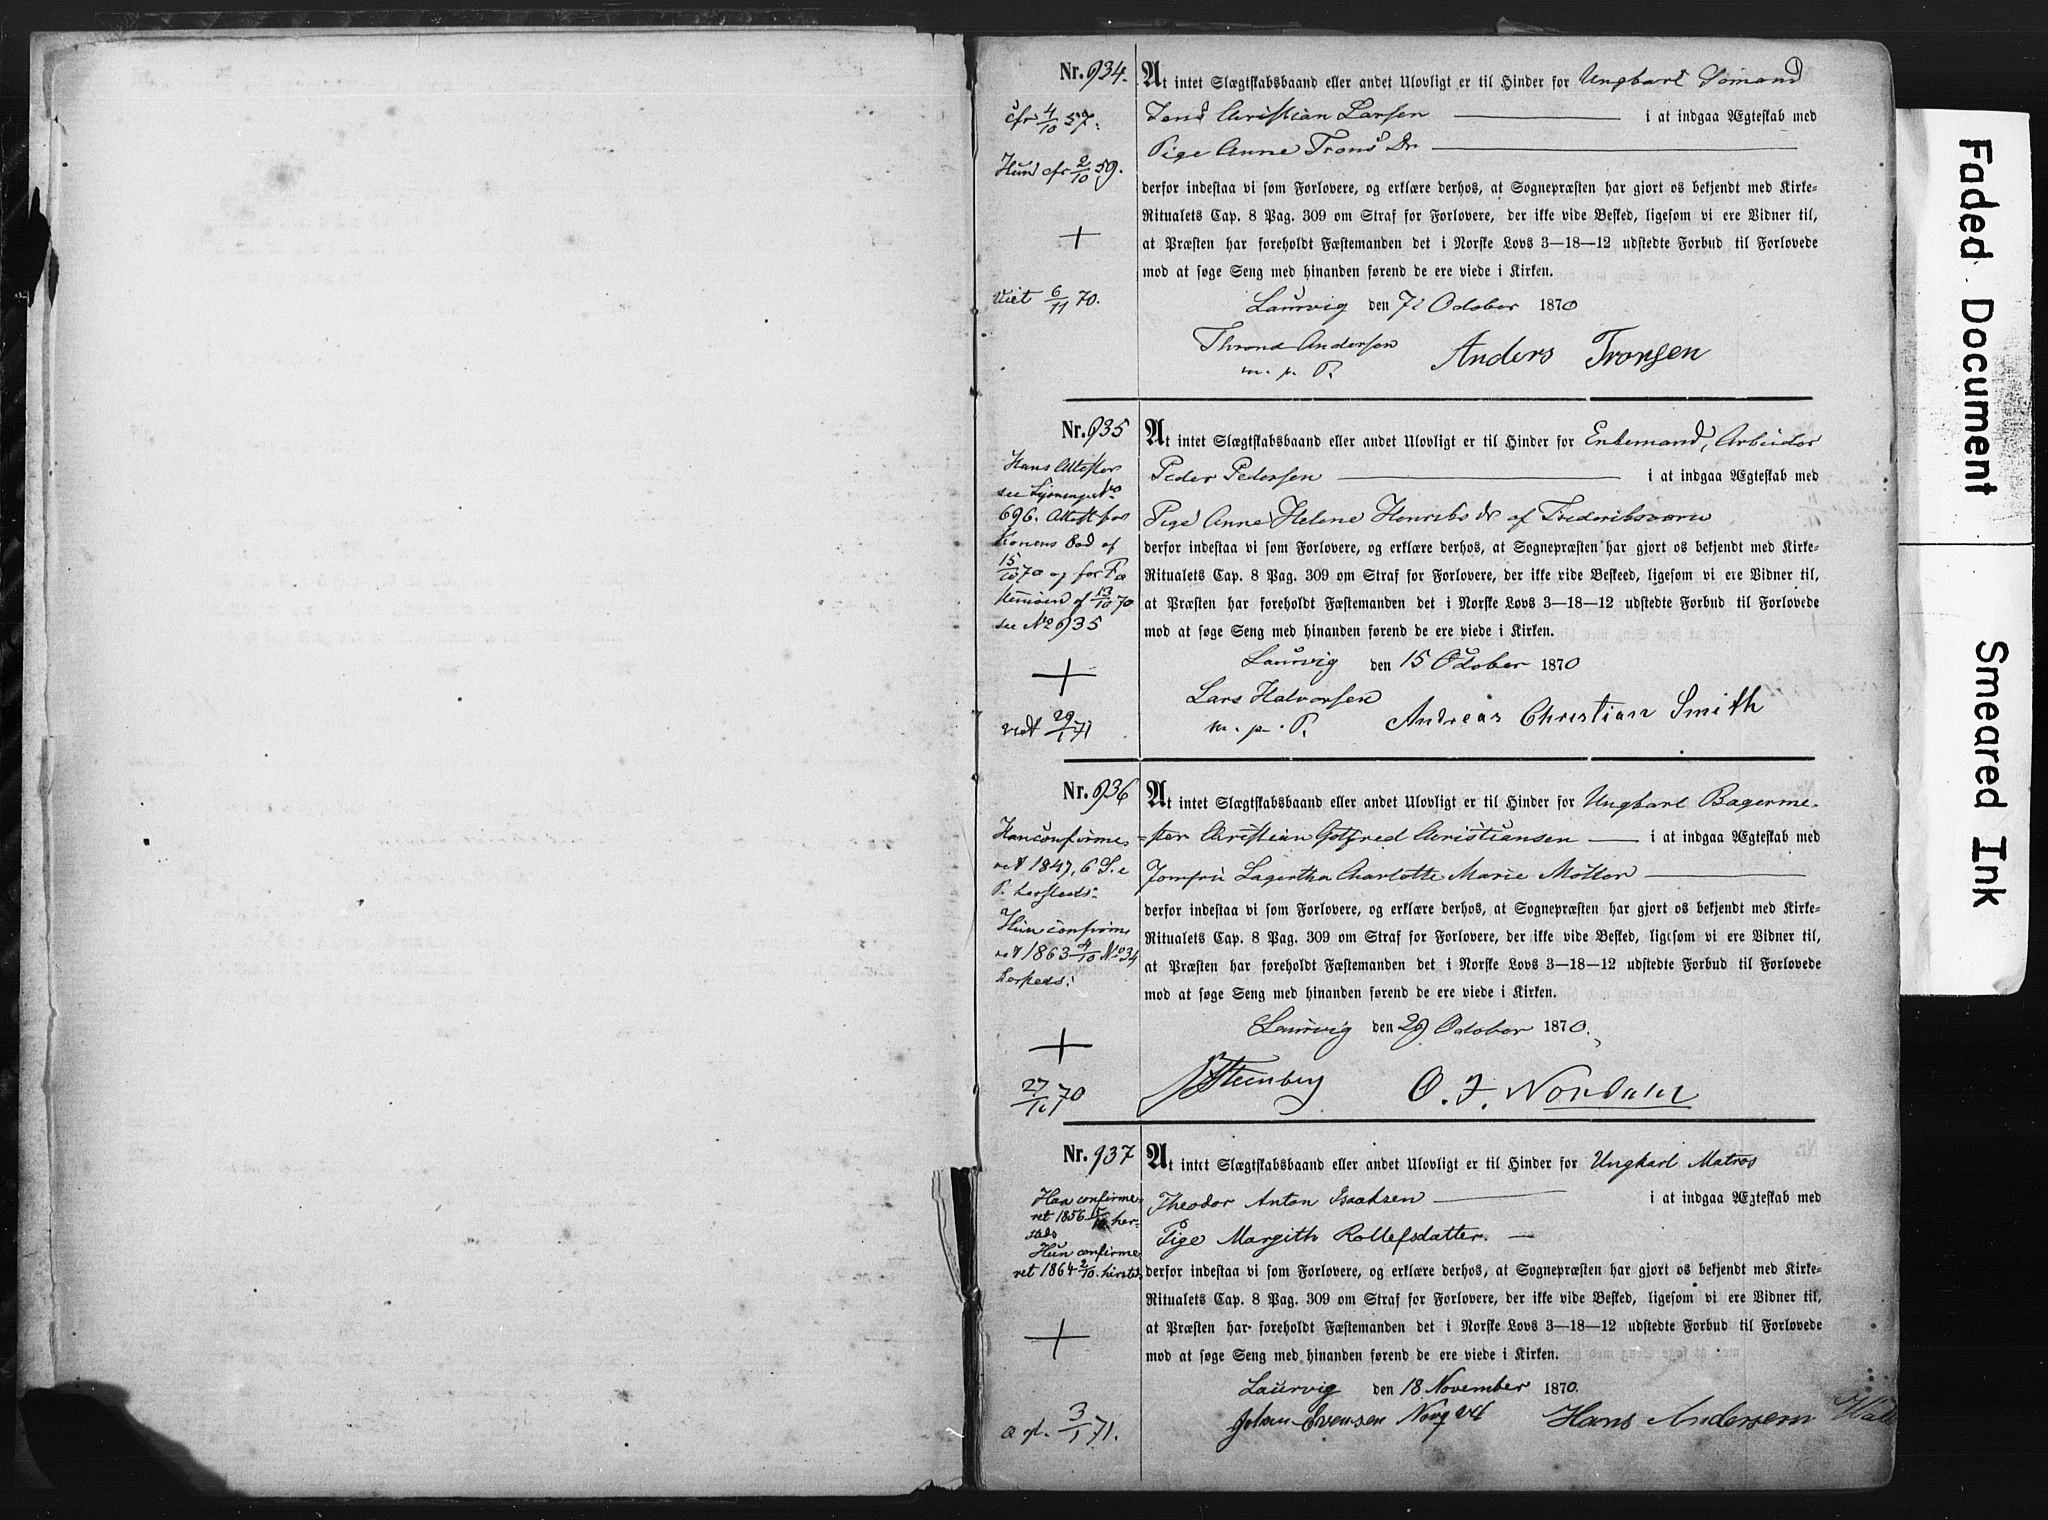 Nr. 934.
At intet Slægtskabsbaand eller andet Ulovligt er til Hinder for Ungkarl Sømand
cfr 4/10 57.
Jens Christian Larsen i at indgaa Ægteskab med
Pige Anne Trons Dr
Hun cfr 2/10 59.
derfor indestaa vi som Forlovere, og erklære derhos, at Sognepræsten har gjort os bekjendt med Kirke-
Ritualets Cap. 8 Pag. 309 om Straf for Forlovere, der ikke vide Besked, ligesom vi ere Vidner til,
at Præsten har foreholdt Fæstemanden det i Norske Lovs 3—18—12 udstedte Forbud til Forlovede
mod at søge Seng med hinanden førend de ere viede i Kirken.
+
viet 6/11 70.
Laurvig den 7 October 1870
Thrond Andersen Anders Tronsen
m. p. P.
Nr. 935
At intet Slægtskabsbaand eller andet Ulovligt er til Hinder for Enkemand, Arbeider
Peder Pedersen i at indgaa Ægteskab med
Pige Anne Helene Henriks Dr af Frederiksværn
Hans Attester
see Lysningen No
696. Attest for
Konens Død af
15/10 70 og for Fæ
stemøen af 13/10 70
see No 935
derfor indestaa vi som Forlovere, og erklære derhos, at Sognepræsten har gjort os bekjendt med Kirke-
Ritualets Cap. 8 Pag. 309 om Straf for Forlovere, der ikke vide Beskeed, ligesom vi ere Vidner til,
at Præsten har foreholdt Fæstemanden det i Norske Lovs 3—18—12 udstedte Forbud til Forlovede
mod at søge Seng med hinanden førend de ere viede i Kirken.
+
viet 29/1 71
Laurvig den 15 October 1870
Lars Halvorsen Andreas Christian Smith
m. p. P.
Nr. 936
At intet Slægtskabsbaand eller andet Ulovligt er til Hinder for Ungkarl Bagerme-
ster Christian Gotfred Christiansen i at indgaa Ægteskab med
Jomfru Lagertha Charlotte Marie Møller
Han confirme-
ret 1847, 6 S. e
P. hersteds.
Hun confirme
ret 1863 4/10 No 34
hersteds.
derfor indestaa vi som Forlovere, og erklære derhos, at Sognepræsten har gjort os bekjendt med Kirke-
Ritualets Cap. 8 Pag. 309 om Straf for Forlovere, der ikke vide Besked, ligesom vi ere Vidner til,
at Præsten har foreholdt Fæstemanden det i Norske Lovs 3—18—12 udstedte Forbud til Forlovede
mod at søge Seng med hinanden førend de ere viede i Kirken.
+
27/11 70
Laurvig den 29 October 1870.
Steenberg O. J. Nordahl
Nr. 937
At intet Slægtskabsbaand eller andet Ulovligt er til Hinder for Ungkarl Matros
Theodor Anton Isaaksen i at indgaa Ægteskab med
Pige Margith Rollefsdatter.
Han confirme-
ret 1856 5/10 her-
steds
Hun confirme
ret 1864 2/10. hersteds
derfor indestaa vi som Forlovere, og erklære derhos, at Sognepræsten har gjort os bekjendt med Kirke-
Ritualets Cap. 8 Pag. 309 om Straf for Forlovere, der ikke vide Besked, ligesom vi ere Vidner til,
at Præsten har foreholdt Fæstemanden det i Norske Lovs 3—18—12 udstedte Forbud til Forlovede
mod at søge Seng med hinanden førend de ere viede i Kirken.
+
3/1 71.
Laurvig den 18 November 1870.
Johan Svensen Hans Andersen
Faded Document
Smeared Ink